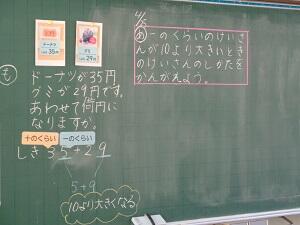 4/5
め 一のくらいのけいさ
んが10より大きいとき
のけいさんのしかたを
かんがえよう。
ドーナツ
35円
グミ
29円
も
ドーナツが35円、
グミが29円です。
あわせて何円に
なりますか。
十のくらい 一のくらい
しき 35+29
5+9
10より大きくなる